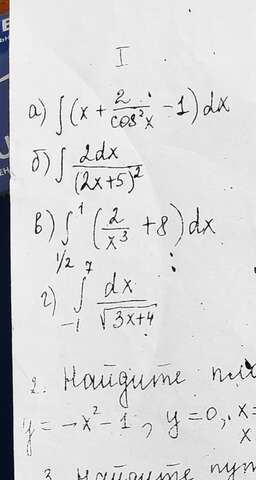 I
а) ∫(x + 2/cos²x - 1)dx
б) ∫ 2dx/(2x+5)²
в) ∫₁/₂¹ (2/x³ + 8)dx
г) ∫₋₁⁷ dx/√(3x+4)
2. Найдите
y = -x² - 1, y = 0, x =
x
3. Найдите